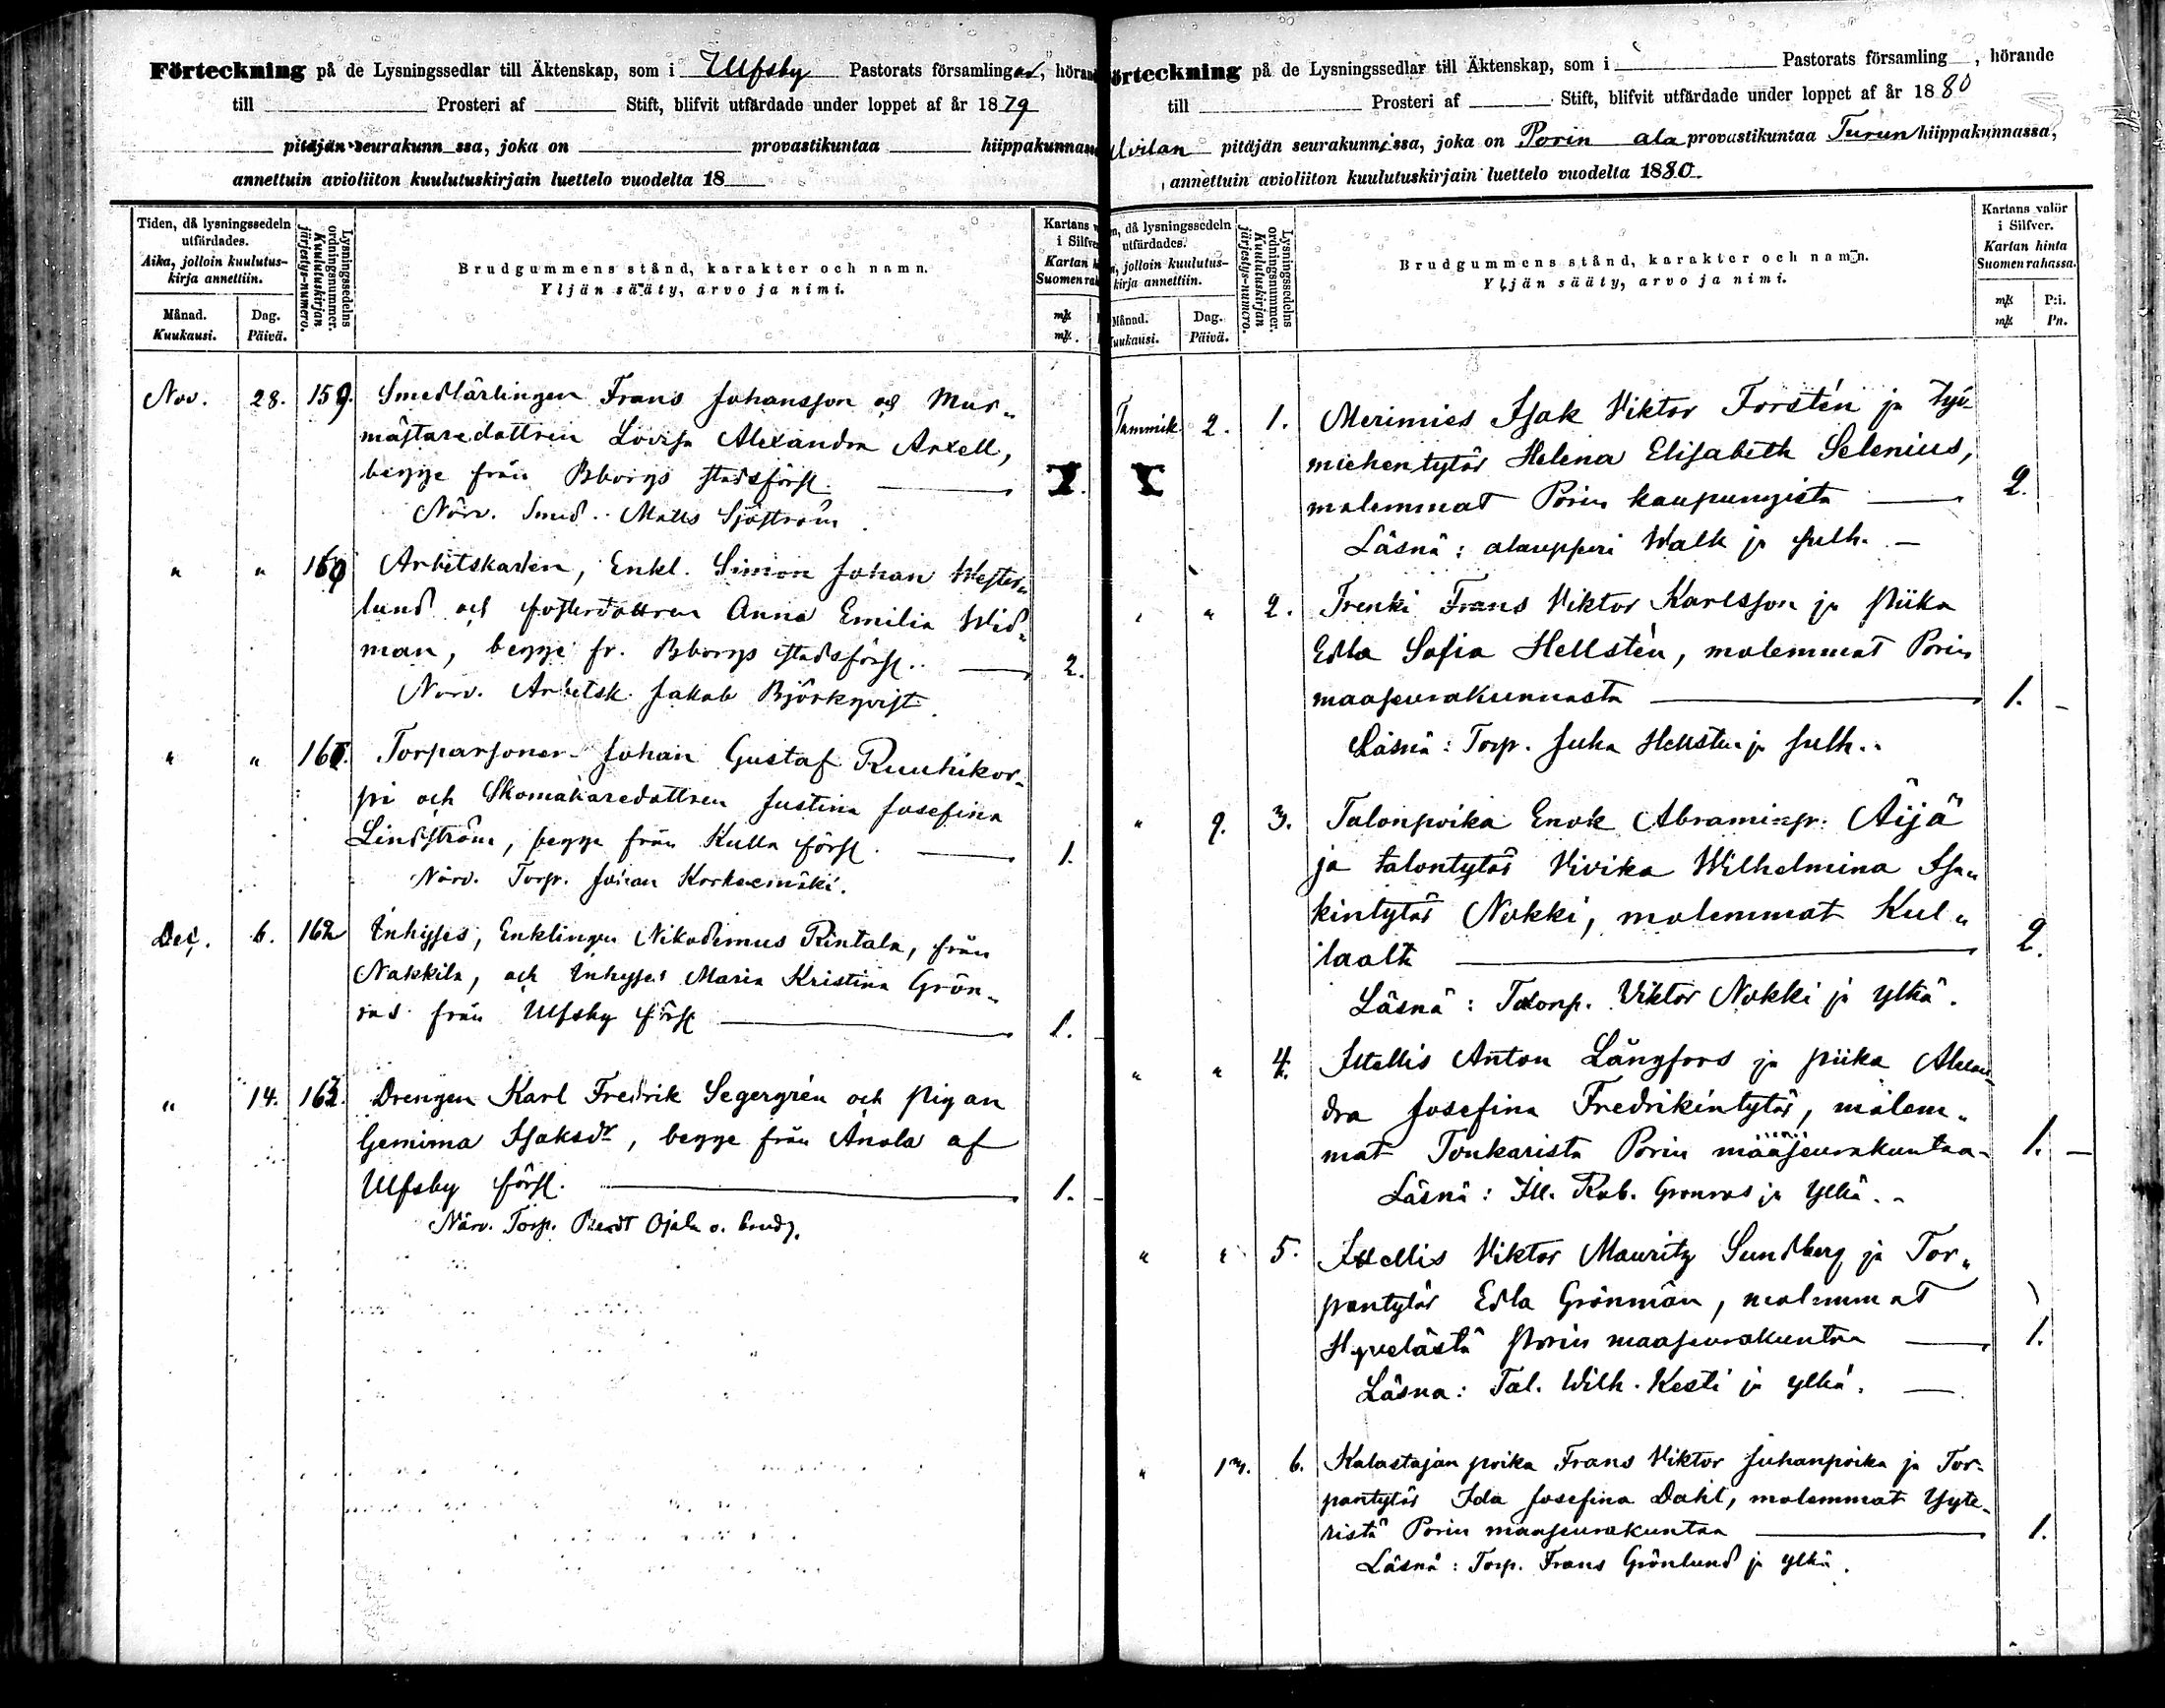 Förteckning på de Lysningssedlar till Äktenskap, som i Ulfsby Pastorats församlingar, höran
till Prosteri af Stift, blifvit utfärdade under loppet af år 1879
pitäjän seurakunn ssa, joka on provastikuntaa hiippakunnas
annettuin avioliiton kuulutuskirjain luettelo vuodelta 18
Tiden, då lysningssedeln utfärdades.
Aika, jolloin kuulutus-kirja annettiin.
Månad.
Kuukausi.
Dag.
Päivä.
Lysningssedelns ordningsnummer.
Kuulutuskirjan järjestys-numero.
Brudgummens stånd, karakter och namn.
Yljän sääty, arvo ja nimi.
Kartans v
i Silfve
Kartan h
Suomen rah
mk
mk.
Nov. 28. 159. Smedlärlingen Frans Johansson och Mur„
mästaredottren Lovisa Alexandra Axell,
begge från Bborgs stadsförsl.
Närv. Smed. Matts Sjöström
" " 160 Arbetskarlen, Enkl. Simon Johan Wester„
lund och fosterdottren Anna Emilia Wid„
man, begge fr. Bborgs stadsförsl. 2.
Närv. Arbetsk. Jakob Björkqvist.
" " 161. Torparsonen Johan Gustaf Ruuhikor„
pi och Skomakaredottren Justina Josefina
Lindström, begge från Kulla försl. 1.
Närv. Torp. Johan
Dec. 6. 162 Inhyses, Enklingen Nikodemus Rintala, från
Nakkila, och Inhyses Maria Kristina Grön„
ros från Ulfsby försl 1.
" 14. 163. Drengen Karl Fredrik Segergrén och pigan
Gemima Isaksdr, begge från Anola af
Ulfsby försl. 1.
Närv. Torp. Ojala o. brudg.
örteckning på de Lysningssedlar till Äktenskap, som i Pastorats församling , hörande
till Prosteri af Stift, blifvit utfärdade under loppet af år 1880
Ulvilan pitäjän seurakunnissa, joka on Porin ala provastikuntaa Turun hiippakunnassa,
annettuin avioliiton kuulutuskirjain luettelo vuodelta 1880.
n, då lysningssedeln utfärdades.
a, jolloin kuulutus-kirja annettiin.
Månad.
Kuukausi.
Dag.
Päivä.
Lysningssedelns ordningsnummer.
Kuulutuskirjan järjestys-numero.
Brudgummens stånd, karakter och namn.
Yljän sääty, arvo ja nimi.
Kartans valör i Silfver.
Kartan hinta Suomen rahassa.
mk P:i.
mk Pn.
Tammik. 2. 1. Merimies Isak Viktor Forstén ja työ-
miehentytär Helena Elisabeth Selenius,
molemmat Porin kaupungista 2.
Läsnä: alaupperi Walk ja sulh.
" " 2. Trenki Frans Viktor Karlsson ja piika
Edla Sofia Hellstén, molemmat Porin
maaseurakunnasta 1.
Läsnä: Torp. Juha Hellsten ja sulh.
" 9. 3. Talonpoika Enok Abraminp. Äijä
ja talontytär Vivika Wilhelmina Isa„
kintytär Nokki, molemmat Kul„
laalta 2.
Läsnä: Talonp. Viktor Nokki ja ylkä.
" " 4. Itsellis Anton Långfors ja piika Alexan
dra Josefina Fredrikintytär, molem„
mat Toukarista Porin maaseurakuntaa 1.
Läsnä: Its. Rob. Grönroos ja ylkä.
" " 5. Itsellis Viktor Mauritz Sundberg ja Tor„
parintytär Edla Grönman, molemmat
Hyvelästä Porin maaseurakuntaa 1.
Läsnä: Tal. Wilh. Kesti ja ylkä.
" 13. 6. Kalastajan poika Frans Viktor Juhanpoika ja Tor-
parintytär Ida Josefina Dahl, molemmat Yyte-
ristä Porin maaseurakuntaa 1.
Läsnä: Torp. Frans Grönlund ja ylkä.